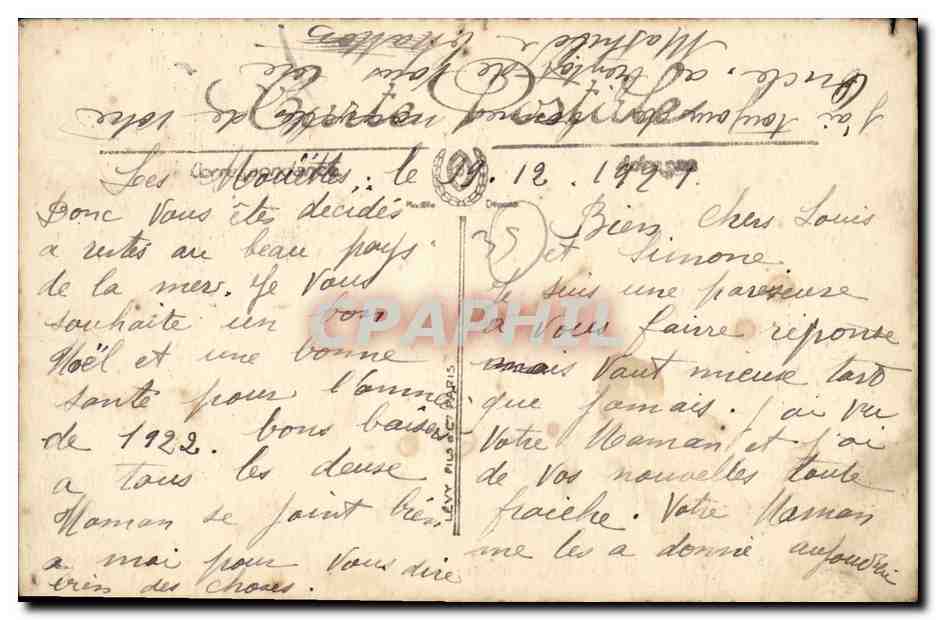 Les Mouettes. le 19.12.1921
Bien chers Louis
et Simone
Je suis une pareseuse
a vous fairre reponse
mais vaut mieux tard
que jamais. j'ai vu
Votre Maman et j'ai
de vos nouvelles toute
fraiche. Votre Maman
me les a donné aujourdui
Donc vous êtes décidés
a restes au beau pays
de la mer. Je vous
souhaite un bon
Noël et une bonne
santé pour l'anne
de 1922. bons baisers
a tous les deuse
Maman se joint bien
a moi pour vous dire
bien des choses.
J'ai toujour de bonnes nouvelle de votre
Oncle. a bientot de vous lire
Mathilde
Carte Postale
Correspondance
Adresse
Modèle Déposé
LEVY FILS & Cie PARIS
35
CPAPHIL